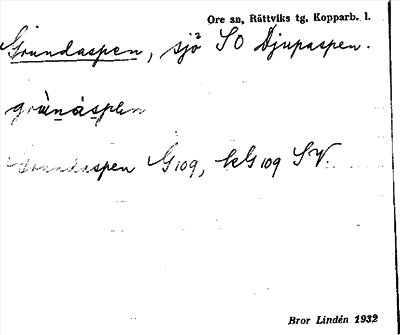 Ore sn, Rättviks tg, Kopparb. l.
Grundaspen, sjö² SO Djupaspen.
grùnàspẹn
Grundaspen G109, kG109 SV.
Bror Lindén 1932